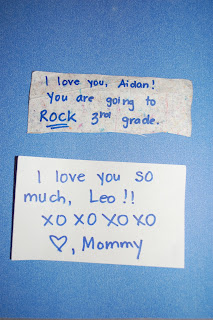 I love you, Aidan!
You are going to
Rock 3rd grade.
I love you so
much, Leo!!
XO XO XO XO
♡, Mommy